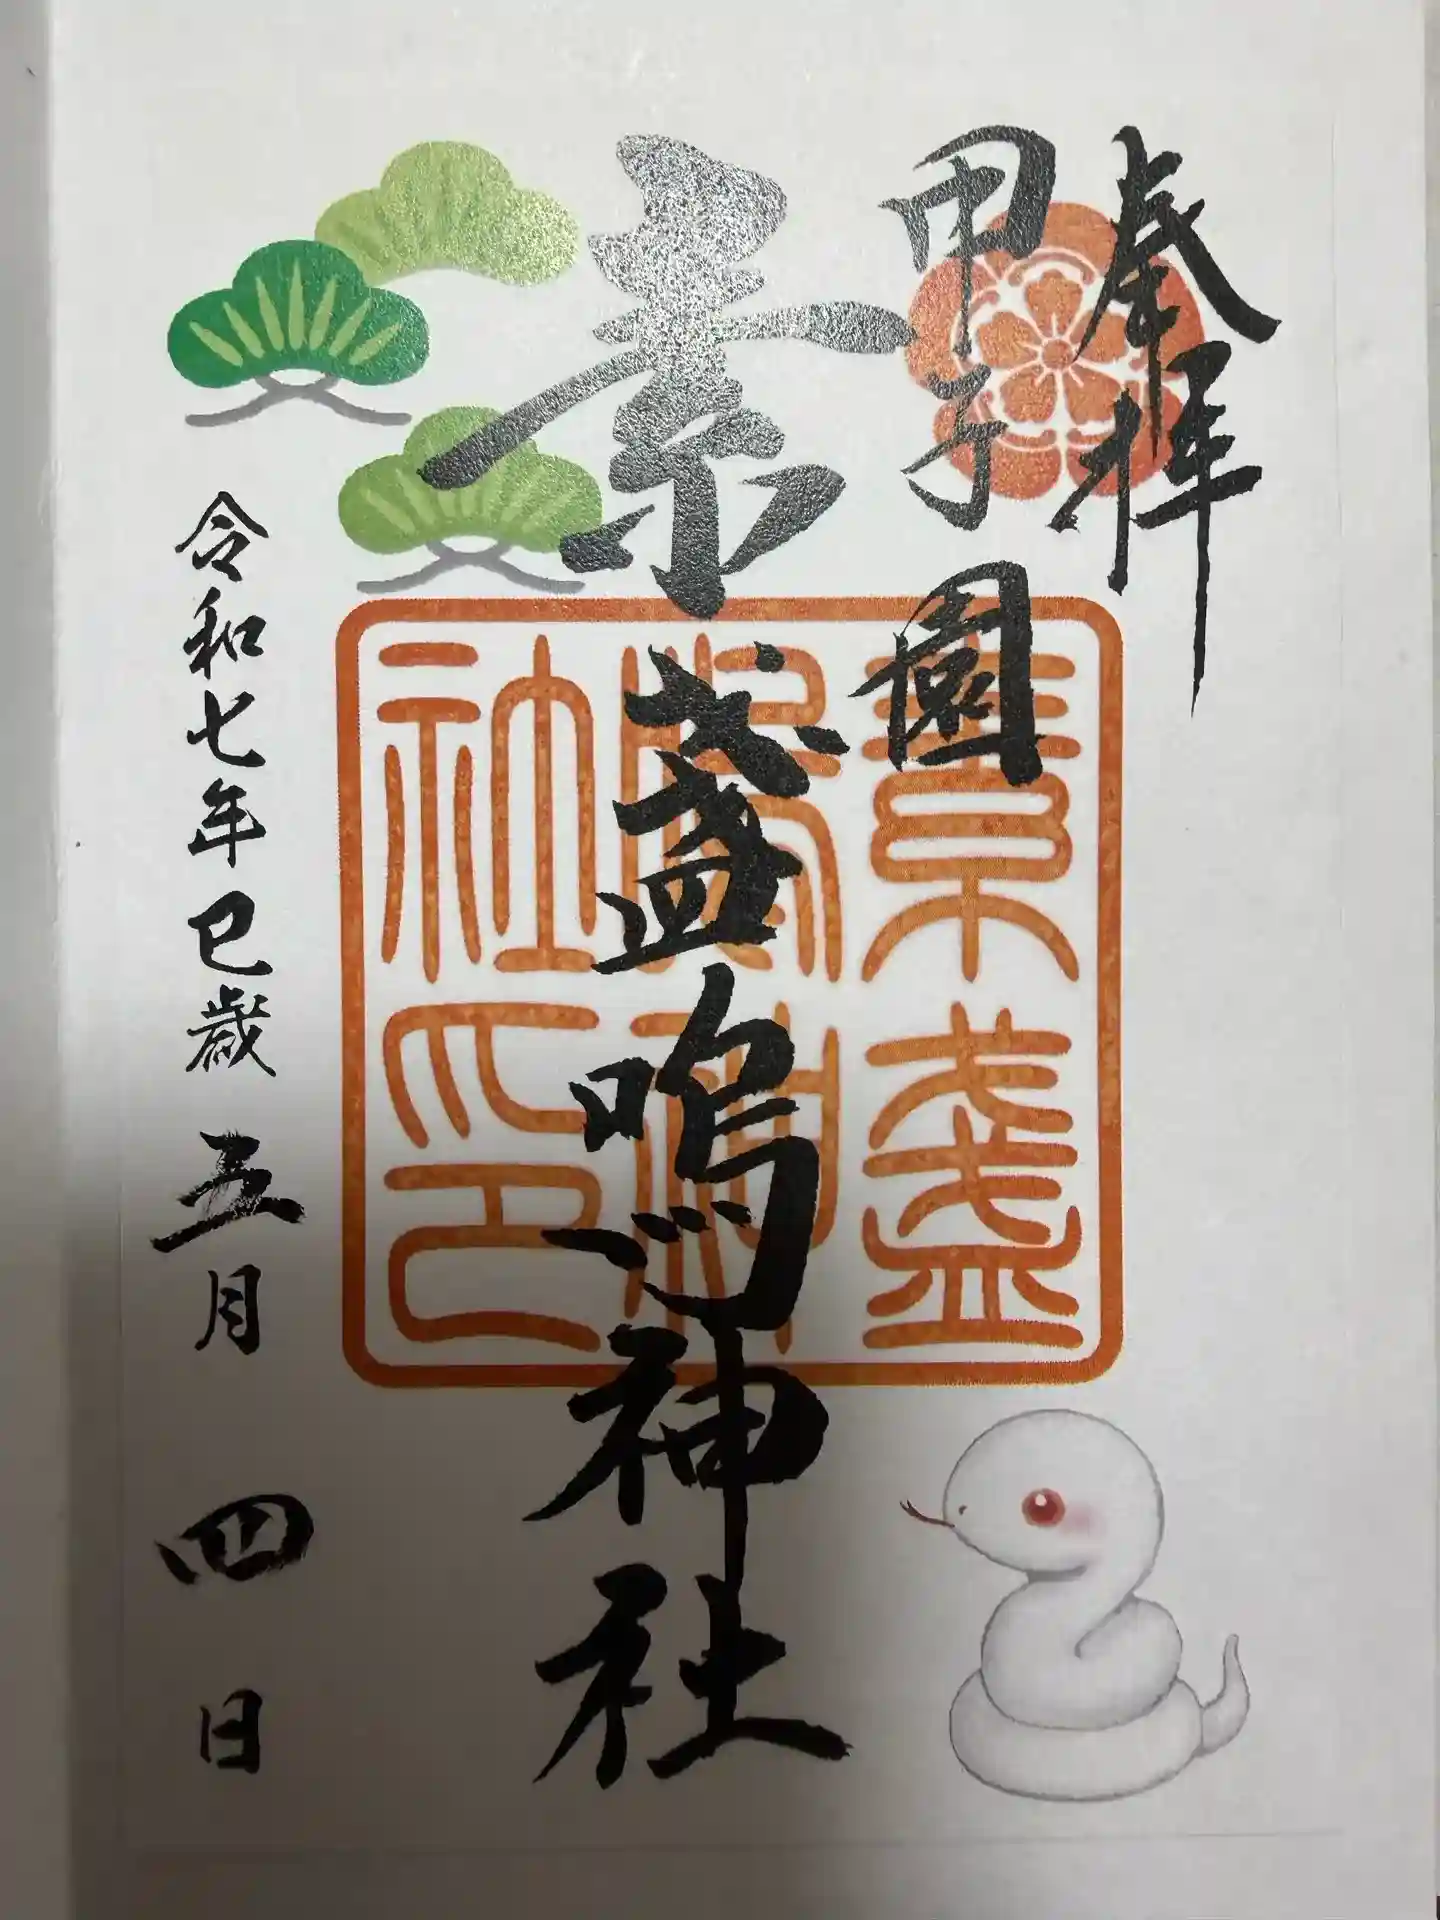 奉拝
甲子園
素盞嗚神社
素盞
嗚神
社印
令和七年巳歳 五月 四日